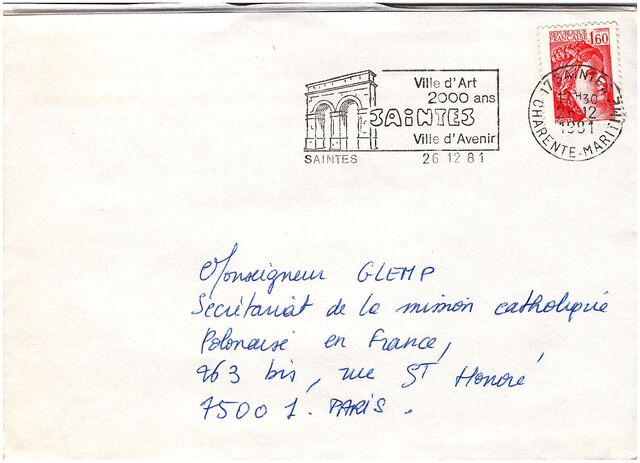 REPUBLIQUE
FRANÇAISE 1,60
Ville d'Art
2000 ans
SAINTES
Ville d'Avenir
SAINTES 26 12 81
17 SAINTES
17H30
26-12
1981
CHARENTE-MARITIME
Monseigneur GLEMP
Secrétariat de la mission catholique
Polonaise en France,
263 bis, rue ST Honoré
75001. PARIS.